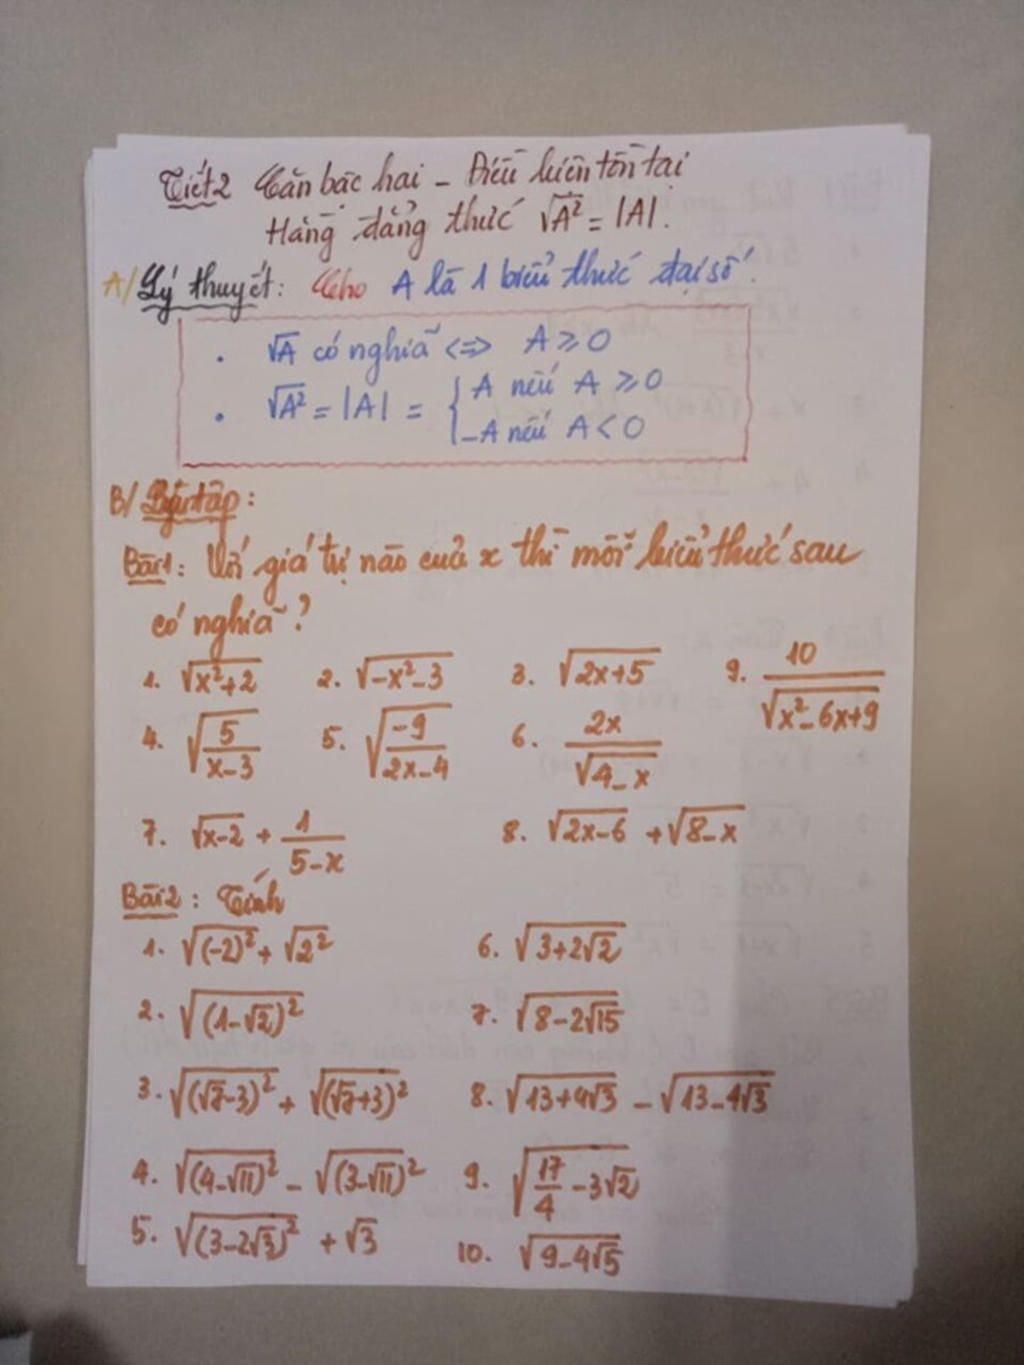 Tiết 2 Căn bậc hai - Điều kiện tồn tại
Hằng đẳng thức √A² = |A|.
A/ Lý thuyết: Cho A là 1 biểu thức đại số.
• √A có nghĩa <=> A ≥ 0
• √A² = |A| = { A nếu A ≥ 0
-A nếu A < 0
B/ Bài tập:
Bài 1: Với giá trị nào của x thì mỗi biểu thức sau
có nghĩa?
1. √(x²+2) 2. √(-x²-3) 3. √(2x+5) 9. 10/√(x²-6x+9)
4. √(5/(x-3)) 5. √(-9/(2x-4)) 6. 2x/√(4-x)
7. √(x-2) + 1/(5-x) 8. √(2x-6) + √(8-x)
Bài 2: Tính
1. √((-2)²) + √(2²) 6. √(3+2√2)
2. √((1-√2)²) 7. √(8-2√15)
3. √((√7-3)²) + √((√7+3)²) 8. √(13+4√3) - √(13-4√3)
4. √((4-√11)²) - √((3-√11)²) 9. √(17/4 - 3√2)
5. √((3-2√3)²) + √3 10. √(9-4√5)